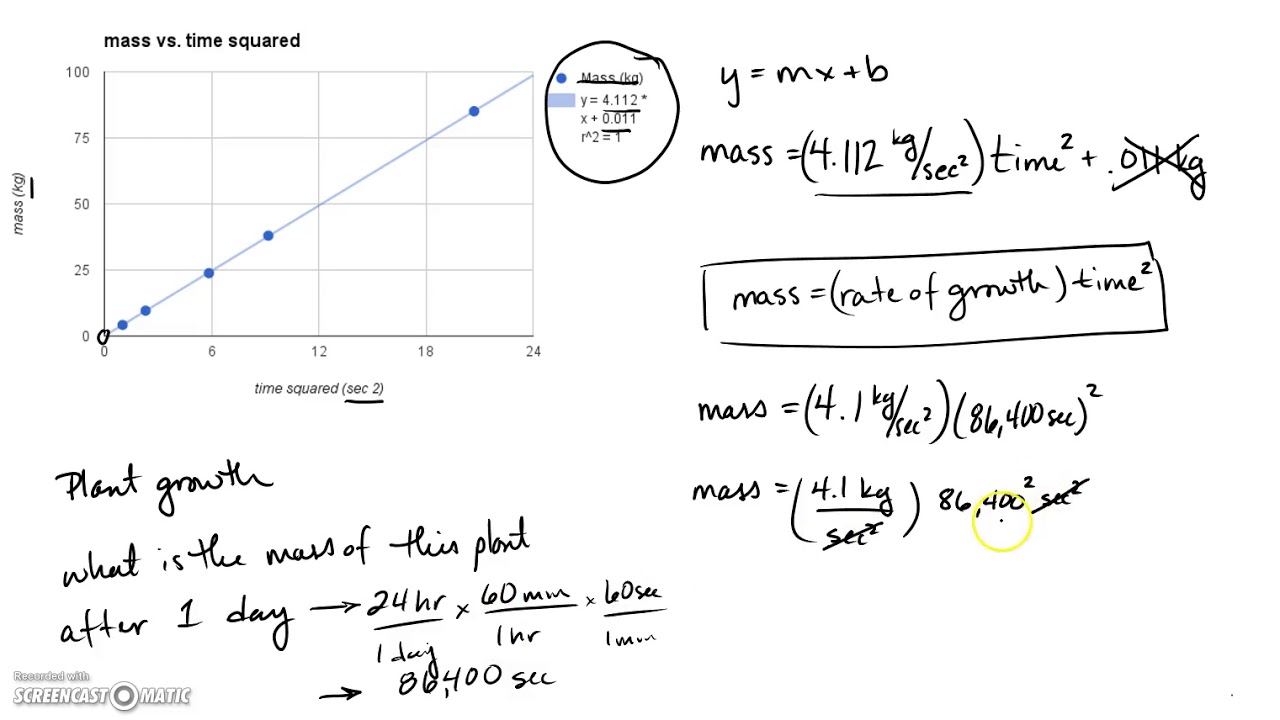 mass vs. time squared
100
75
50
25
0
0 6 12 18 24
mass (kg)
time squared (sec 2)
Mass (kg)
y = 4.112 *
x + 0.011
r^2 = 1
y = mx + b
mass = (4.112 kg/sec²) time² + .011 kg
mass = (rate of growth) time²
mass = (4.1 kg/sec²)(86,400 sec)²
mass = (4.1 kg / sec²) 86,400² sec²
Plant growth
what is the mass of this plant
after 1 day → 24 hr / 1 day × 60 min / 1 hr × 60 sec / 1 min
→ 86,400 sec
Recorded with
SCREENCAST-O-MATIC